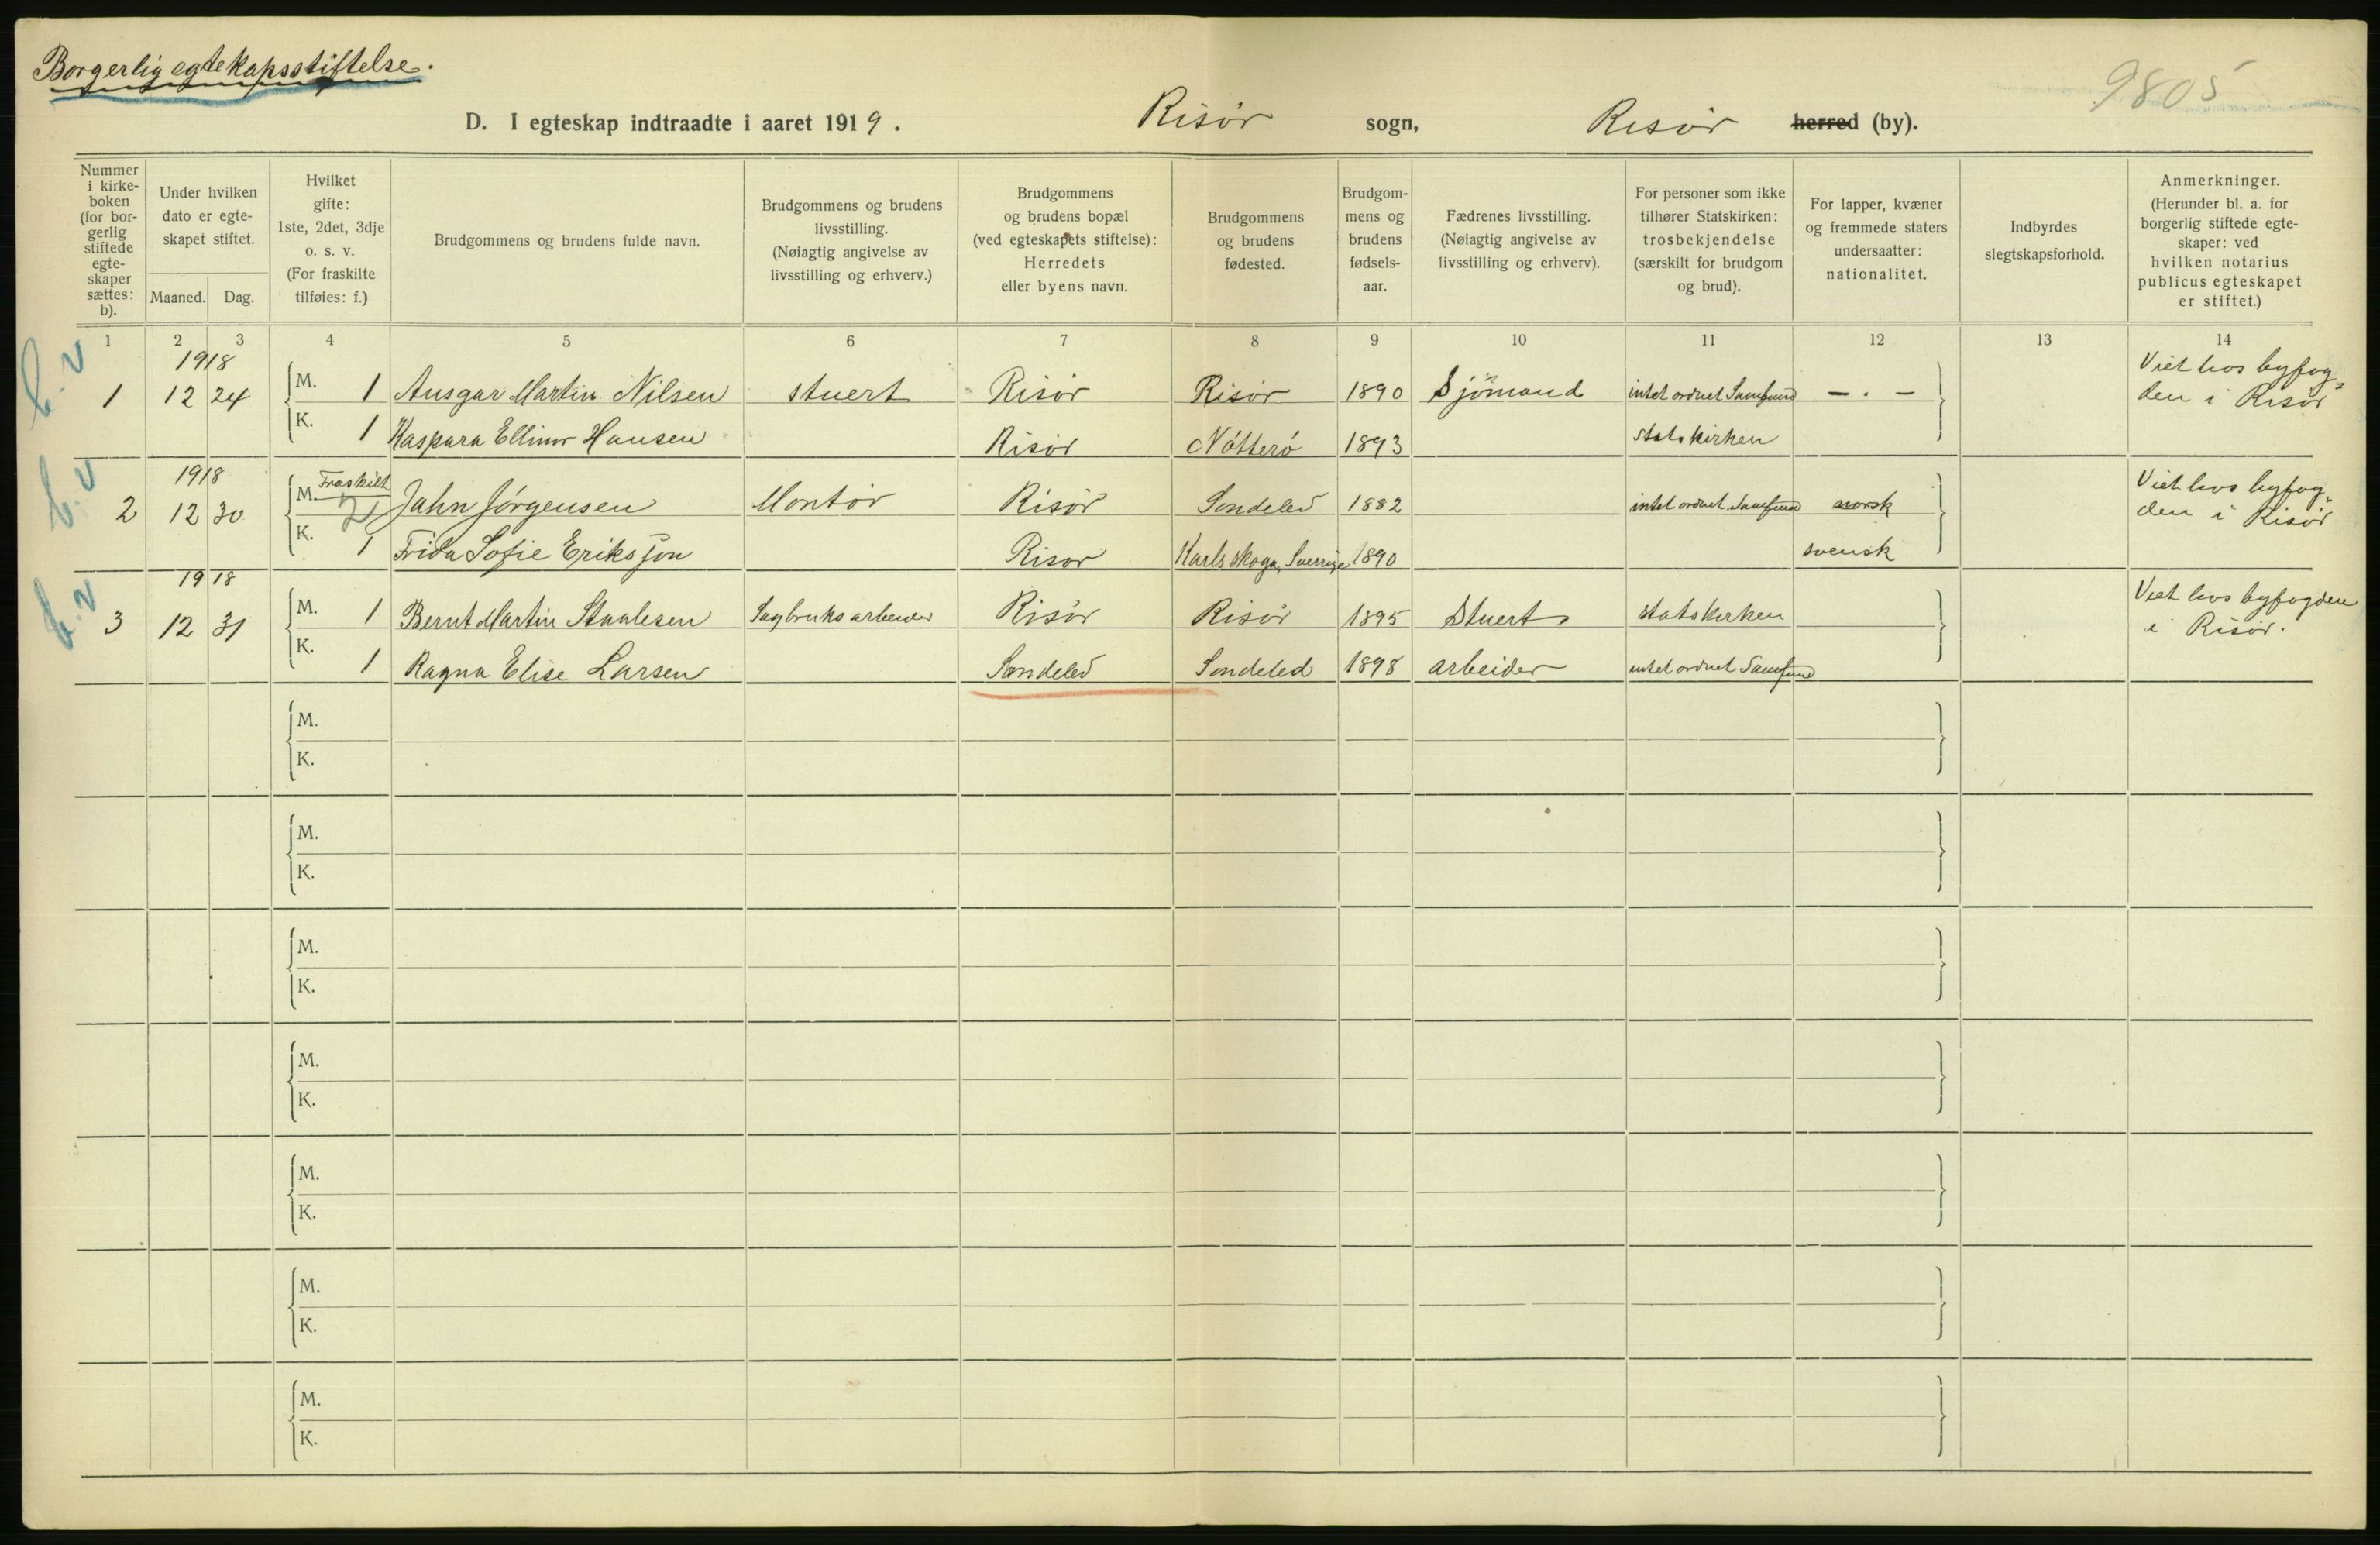 Borgerlig egtekapsstiftelse.
9805
D. I egteskap indtraadte i aaret 1919. Risör sogn, Risör herred (by).
Nummer i kirke-boken (for bor-gerlig stiftede egte-skaper sættes: b). | Under hvilken dato er egte-skapet stiftet. Maaned. Dag. | Hvilket gifte: 1ste, 2det, 3dje o. s. v. (For fraskilte tilføies: f.) | Brudgommens og brudens fulde navn. | Brudgommens og brudens livsstilling. (Nøiagtig angivelse av livsstilling og erhverv.) | Brudgommens og brudens bopæl (ved egteskapets stiftelse): Herredets eller byens navn. | Brudgommens og brudens fødested. | Brudgom-mens og brudens fødsels-aar. | Fædrenes livsstilling. (Nøiagtig angivelse av livsstilling og erhverv). | For personer som ikke tilhører Statskirken: trosbekjendelse (særskilt for brudgom og brud). | For lapper, kvæner og fremmede staters undersaatter: nationalitet. | Indbyrdes slegtskapsforhold. | Anmerkninger. (Herunder bl. a. for borgerlig stiftede egte-skaper: ved hvilken notarius publicus egteskapet er stiftet.)
1 2 3 4 5 6 7 8 9 10 11 12 13 14
b. v 1918
1 12 24 M. 1 Ansgar Martin Nilsen stuert Risör Risör 1890 Sjömand intet ordnet Samfund — . — Viet hos byfog=
den i Risör
K. 1 Kaspara Ellinor Hansen Risör Nötterö 1893 statskirken
b. v 1918
2 12 30 M. Fraskilt 2 Jahn Jörgensen Montör Risör Sondeled 1882 intet ordnet Samfund norsk Viet hos byfog=
den i Risör
K. 1 Frida Sofie Eriksson Risör Karlskoga, Sverrige 1890 svensk
b. v 1918
3 12 31 M. 1 Bernt Martin Staalesen Sagbruksarbeider Risör Risör 1895 Stuert statskirken Viet hos byfogden
i Risör.
K. 1 Ragna Elise Larsen Sondeled Sondeled 1898 arbeider intet ordnet Samfund
M.
K.
M.
K.
M.
K.
M.
K.
M.
K.
M.
K.
M.
K.